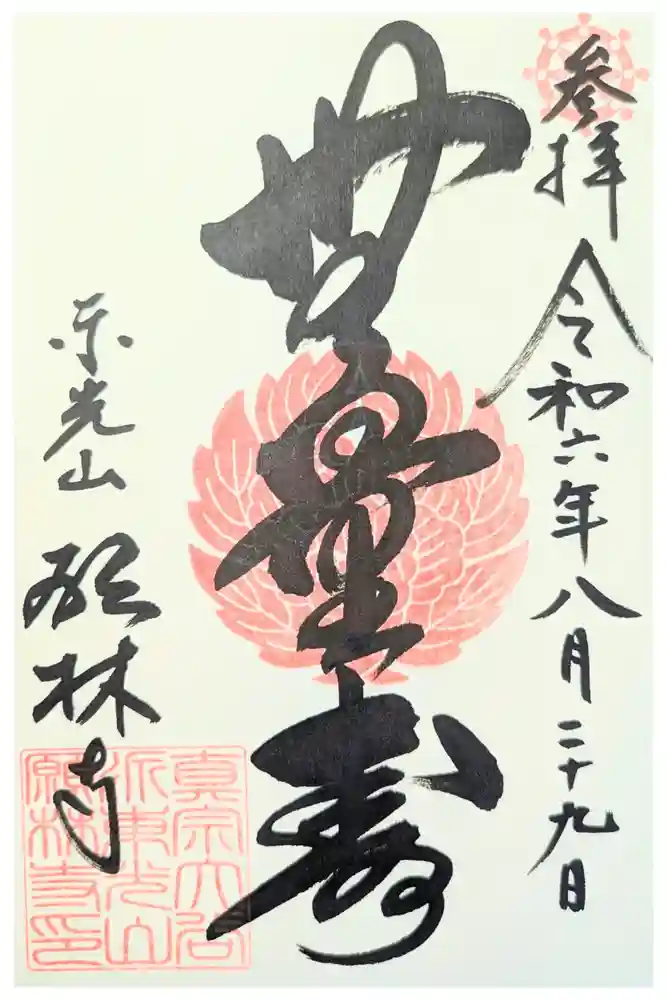 参拝
令和六年八月二十九日
無量寿
東光山
願林寺
真宗大谷
派東光山
願林寺印